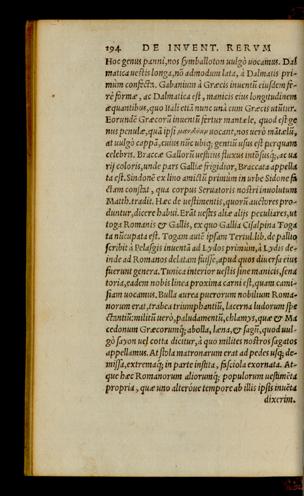 194. DE INVENT. RERVM
Hoc genus panni, nos Symballoton uulgò uocamus. Dal
matica uestis longa, nō admodum lata, à Dalmatis pri-
mùm confecta. Gabanium à Græcis inuentū eiusdem fe-
rè formæ, ac Dalmatica est, manicis eius longitudinem
æquantibus, quo Itali etiā nunc unà cum Græcis utūtur.
Eorundē Græcorū inuentū fertur mantæle, quod est ge
nus penulæ, quā ipsi uocant, nos uerò mātæliī,
at uulgò cappā, cuius nūc ubiq; gentiū usus est perquam
celebris. Braccæ Gallorū uestitus fluxus intōsusq́;, ac ua
rij coloris, unde pars Galliæ frigidior, Braccata appella
ta est. Sindonē ex lino amictū primùm in urbe Sidone fa
ctam constat, qua corpus Seruatoris nostri inuolutum
Matth. tradit. Hæc de uestimentis, quorū auctores pro-
duntur, dicere habui. Erāt uestes aliæ alijs peculiares, ut
toga Romanis & Gallis, ex quo Gallia Cisalpina Toga
ta nūcupata est. Togam autē ipsam Tertul. lib. de pallio
scribit à Pelasgis inuentā ad Lydos primùm, à Lydis de-
inde ad Romanos delatam fuisse, apud quos diuersa eius
fuerunt genera. Tunica interior uestis sine manicis, sena
toria, eadem nobis linea proxima carni est, quam cami-
siam uocamus. Bulla aurea puerorum nobilium Roma-
norum erat, trabea triumphantiū, lacerna ludorum spe
ctantiū: militū uerò, paludamentū, chlamys, quæ & Ma
cedonum Græcorumq́;, abolla, læna, & sagū, quod uul-
gò sayon uel cotta dicitur, à quo milites nostros sagatos
appellamus. At stola matronarum erat ad pedes usq; de-
missa, extremaq́; in parte instita, fasciola exornata. At-
que hæc Romanorum aliorumq́; populorum uestimēta
propria, quæ uno alteróue tempore ab illis ipsis inuēta
dixerim.